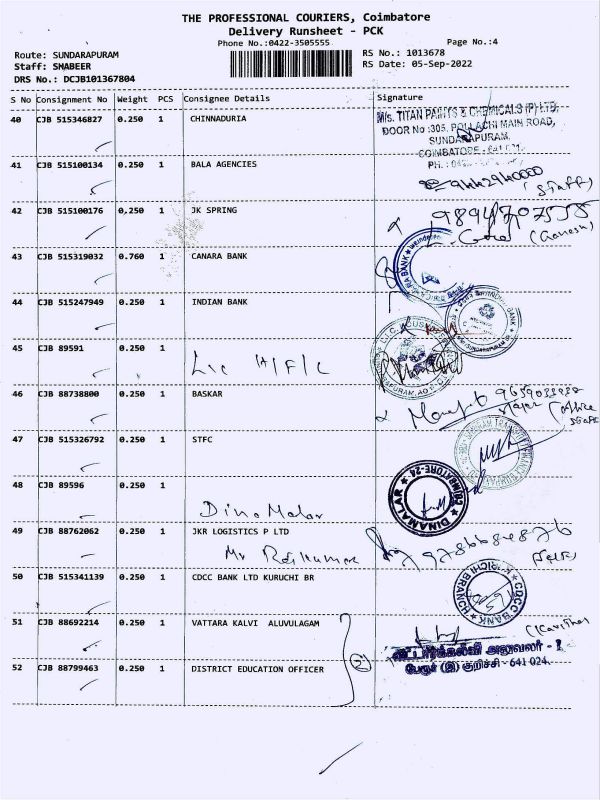 THE PROFESSIONAL COURIERS, Coimbatore
Delivery Runsheet - PCK
Phone No.:0422-3505555
Page No.:4
Route: SUNDARAPURAM
RS No.: 1013678
Staff: SHABEER
RS Date: 05-Sep-2022
DRS No.: DCJB101367804
S No Consignment No Weight PCS Consignee Details Signature
40 CJB 515346827 0.250 1 CHINNADURIA
M/s. TITAN PAINTS & CHEMICALS (P) LTD,
DOOR No :305, POLLACHI MAIN ROAD,
SUNDARAPURAM,
COIMBATORE - 641 024.
PH. :
41 CJB 515100134 0.250 1 BALA AGENCIES
(Staff)
42 CJB 515100176 0,250 1 JK SPRING
9894707555
(Ganesh)
43 CJB 515319032 0.760 1 CANARA BANK
44 CJB 515247949 0.250 1 INDIAN BANK
45 CJB 89591 0.250 1 Lic H/F/C
46 CJB 88738800 0.250 1 BASKAR
(office
staff)
47 CJB 515326792 0.250 1 STFC
48 CJB 89596 0.250 1 Dina Malar
DINAMALAR COIMBATORE-24
49 CJB 88762062 0.250 1 JKR LOGISTICS P LTD
Mr Rajkumar
50 CJB 515341139 0.250 1 CDCC BANK LTD KURUCHI BR
CDCC BANK
51 CJB 88692214 0.250 1 VATTARA KALVI ALUVULAGAM
(Kavitha)
வட்டாரக்கல்வி அலுவலர் - 1
பேரூர் (இ) குறிச்சி - 641 024.
52 CJB 88799463 0.250 1 DISTRICT EDUCATION OFFICER
2